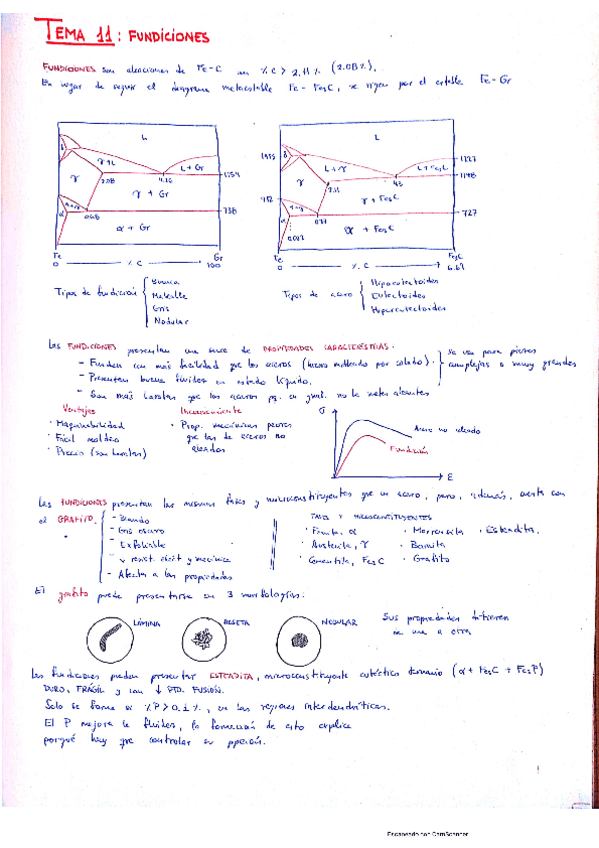 TEMA 11: FUNDICIONES
FUNDICIONES son aleaciones de Fe-C con % C > 2,11 % (2.08%).
En lugar de seguir el diagrama metaestable Fe-Fe3C, se rigen por el estable Fe-Gr
L
δ
γ+L
L+Gr
γ
2.08
4.26
1154
γ + Gr
α+γ
α
0.68
738
α + Gr
Fe
Gr
0
% C
100
L
δ
1495
L+γ
L+Fe3C
1227
γ
2.11
4.3
1148
γ + Fe3C
912
α+γ
α
0.77
727
α + Fe3C
0.022
Fe
Fe3C
0
% C
6.67
Tipos de fundición
Blanca
Maleable
Gris
Nodular
Tipos de acero
Hipoeutectoides
Eutectoides
Hipereutectoides
Las FUNDICIONES presentan una serie de PROPIEDADES CARACTERÍSTICAS.
- Funden con más facilidad que los aceros (menos moldeado por colado).
- Presentan buena fluidez en estado líquido.
Se usa para piezas
complejas o muy grandes
- Son más baratas que los aceros pq. en gral. no la
Ventajas
· Maquinabilidad
· Fácil moldeo
· Precio (son baratas)
Inconveniente
· Prop. mecánicas peores
que las de aceros no
aleados
σ
Acero no aleado
Fundición
ε
Las FUNDICIONES presentan las mismas fases y microconstituyentes que un acero, pero, además, cuenta con
el GRAFITO.
- Blando
- Gris oscuro
- Exfoliable
- ↓ resist. eléct y mecánica
- Afecta a las propiedades
FASES Y MICROCONSTITUYENTES
· Ferrita, α
· Austenita, γ
· Cementita, Fe3C
· Martensita
· Bainita
· Grafito
· Esteadita.
El grafito puede presentarse en 3 morfologías:
LÁMINA
ROSETA
NODULAR
Sus propiedades difieren
de una a otra
Las fundiciones pueden presentar ESTEADITA, microconstituyente eutéctico ternario (α + Fe3C + Fe3P)
DURO, FRÁGIL y con ↓ PTO. FUSIÓN.
Solo se forma si % P > 0.1 %, en las regiones interdendríticas.
El P mejora la fluidez, la formación de esto explica
porqué hay que controlar su
1
Escaneado con CamScanner